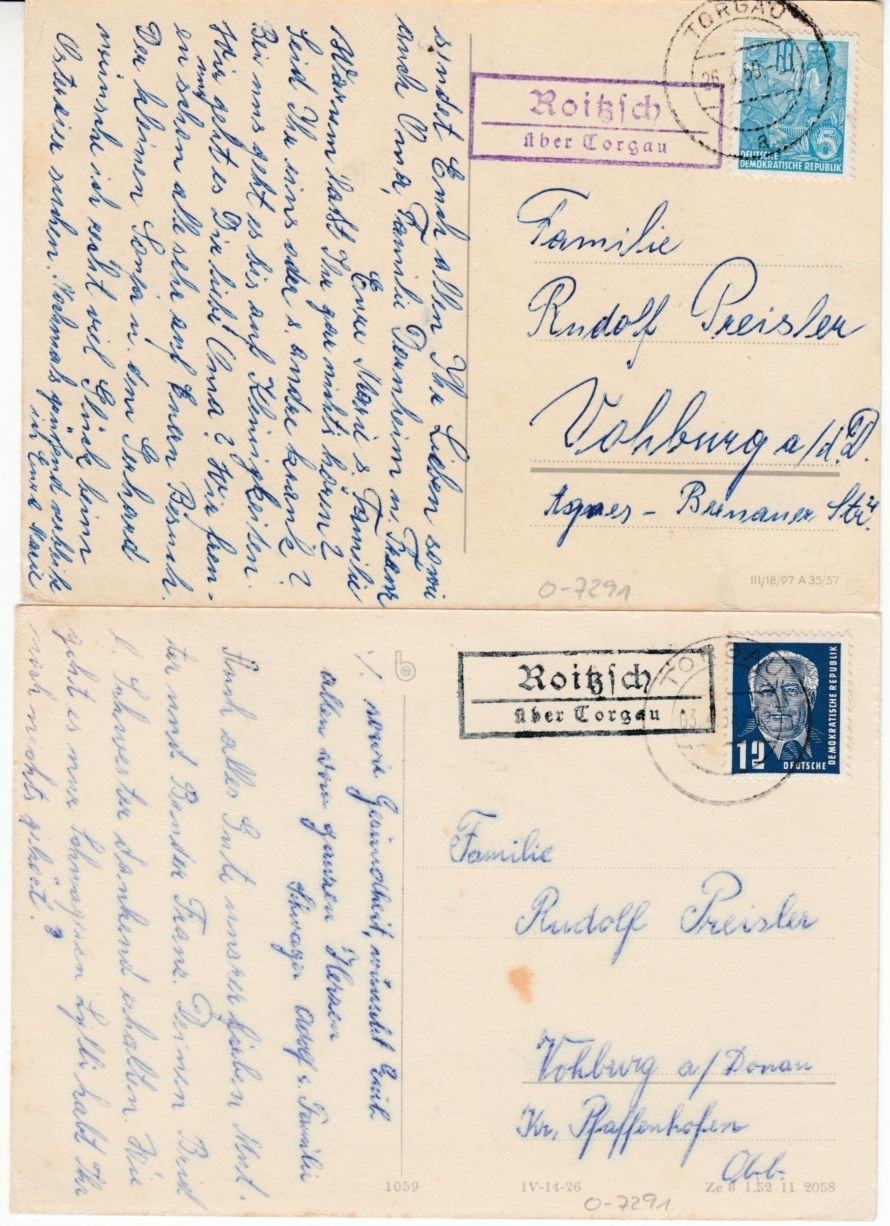 sendet Euch allen Ihr Lieben sowie
auch Oma, Familie Dernheim u. Franz
Eure Marie s. Familie
Warum laßt Ihr gar nichts hören?
Seid Ihr eins oder s. andre krank?
Bei uns geht es bis auf Kleinigkeiten.
Wie geht es Dir liebe Oma? Wir freu-
en uns schon alle sehr auf Euern Besuch.
Der kleinen Sonja u. dem Gerhard
wünsche ich recht viel Glück beim
Ostereier suchen. Nochmals grüßend verbleibe
ich Eure Marie
Roitzsch
über Torgau
TORGAU
26.3.60
a
5
DEUTSCHE
DEMOKRATISCHE REPUBLIK
Familie
Rudolf Preisler
Vohburg a/d. D.
Agnes - Bernauer Str.
III/18/97 A 35/57
O-7291
./. sowie Gesundheit, wünscht Euch
allen von ganzen Herzen
Schwager Adolf s. Familie
Auch alles Gute unserer lieben Mut-
ter und Bruder Franz. Deinen Brief
l. Schwester dankend erhalten. Wie
geht es nur Schwägerin habt Ihr
mich nichts gehört?
Roitzsch
über Torgau
TORGAU
12
DEUTSCHE
DEMOKRATISCHE REPUBLIK
Familie
Rudolf Preisler
Vohburg a/Donau
Kr. Pfaffenhofen
Obb.
1059
IV-14-26
Ze 8 1.52 11 2058
O-7291